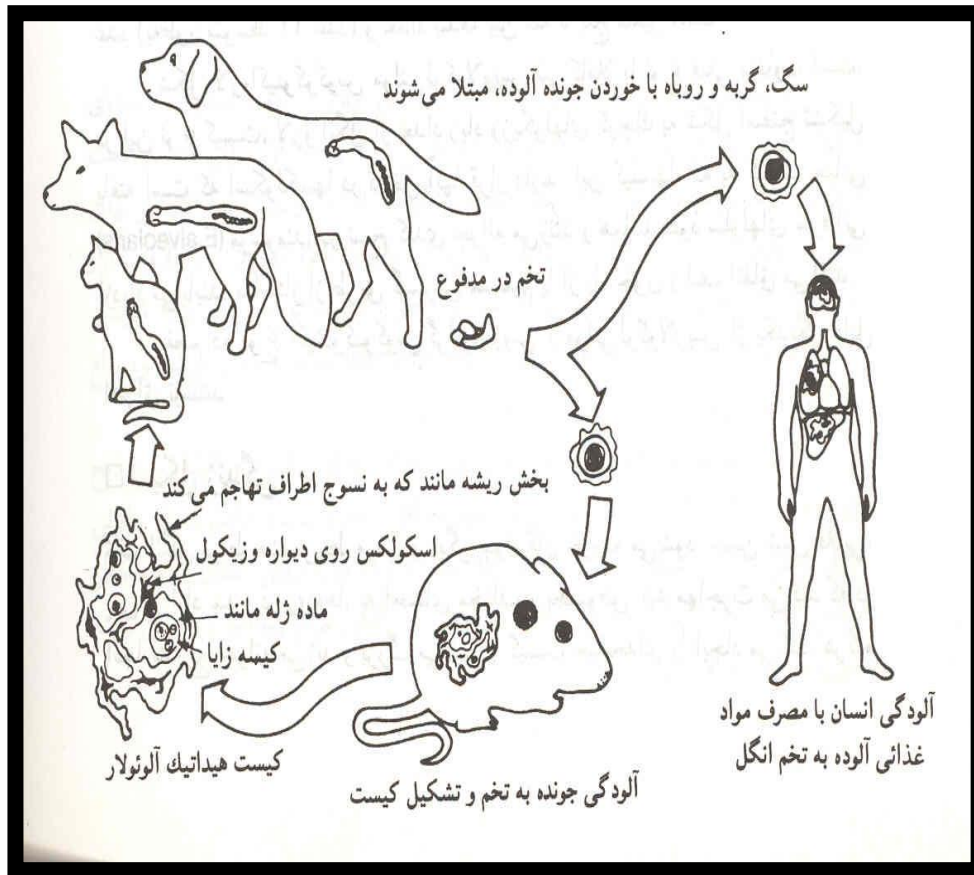 سگ، گربه و روباه با خوردن جونده آلوده، مبتلا می‌شوند
تخم در مدفوع
بخش ریشه مانند که به نسوج اطراف تهاجم می‌کند
اسکولکس روی دیواره وزیکول
ماده ژله مانند
کیسه زایا
کیست هیداتیك آلوئولار
آلودگی جونده به تخم و تشکیل کیست
آلودگی انسان با مصرف مواد
غذائی آلوده به تخم انگل